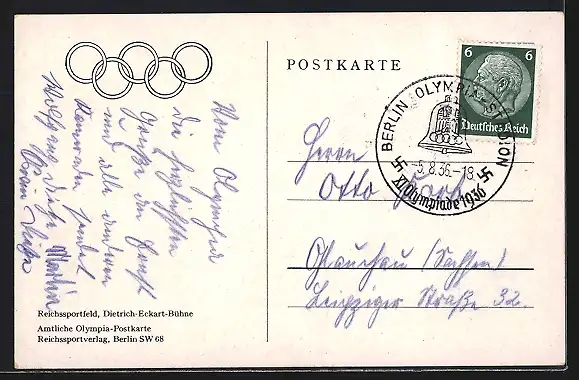 Vom Olympia
die herzlichsten
Grüße
und alle anderen
Kameraden sendet
Martin
Reichssportfeld, Dietrich-Eckart-Bühne
Amtliche Olympia-Postkarte
Reichssportverlag, Berlin SW 68
POSTKARTE
6 6
Deutsches Reich
BERLIN OLYMPIA-STADION
-5.8.36.-18
XI. Olympiade 1936
Herrn
Otto
Glauchau (Sachsen)
Leipziger Straße 32.